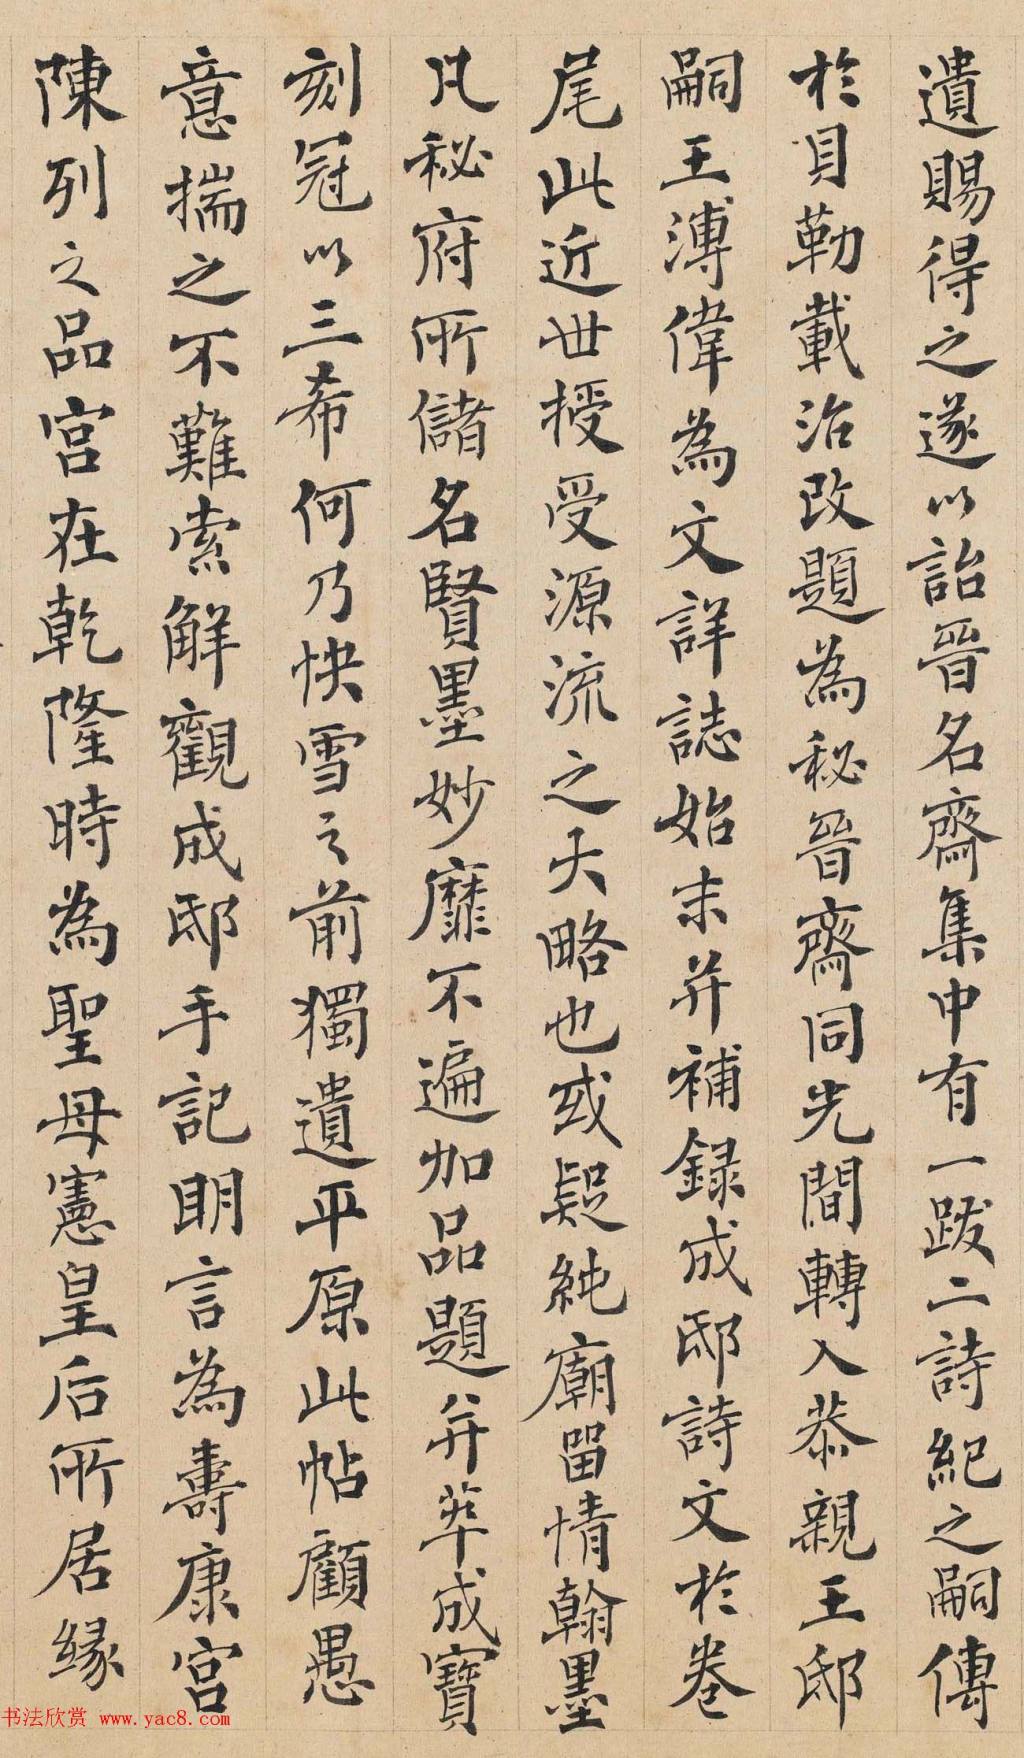 遺賜得之遂以詒晉名齋集中有一跋二詩紀之嗣傳
於貝勒載治改題為秘晉齋同光間轉入恭親王邸
嗣王溥偉為文詳誌始末并補録成邸詩文於卷
尾此近世授受源流之大略也或疑純廟留情翰墨
凡秘府所儲名賢墨妙靡不遍加品題并萃成寶
刻冠以三希何乃快雪之前獨遺平原此帖顧愚
意揣之不難索解觀成邸手記明言為壽康宮
陳列之品宮在乾隆時為聖母憲皇后所居緣
书法欣赏 www.yac8.com